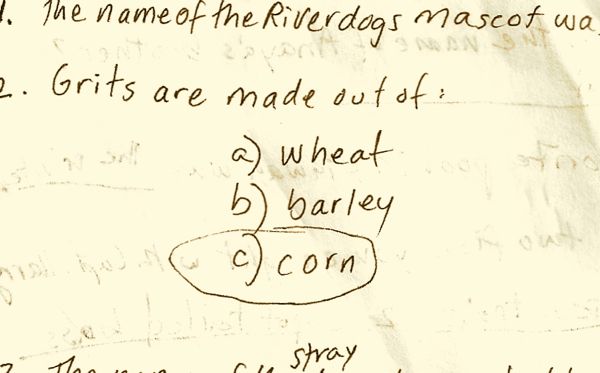 1. The name of the Riverdogs mascot wa
2. Grits are made out of:
a) wheat
b) barley
c) corn
stray